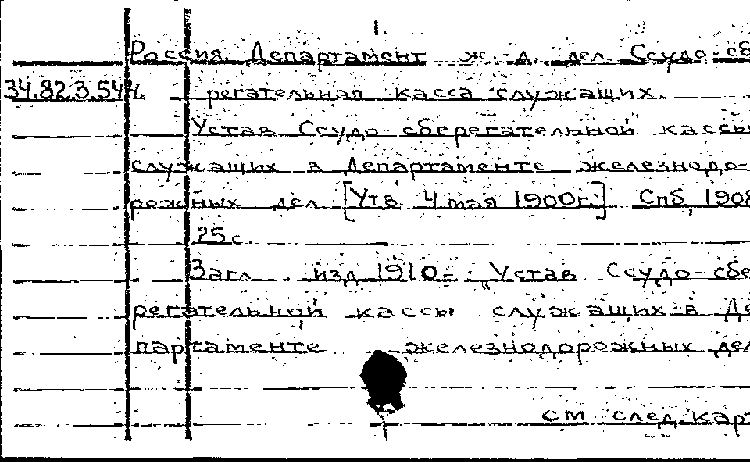 1.
Россия. Департамент ж.-д. дел. Ссудо-сб
34.82.3.54 регательная касса служащих.
Устав Ссудо-сберегательной кассы
служащих в Департаменте железнодо-
рожных дел. [Утв. 4 мая 1900г.] Спб, 1908
25 с.
Загл. изд. 1910г. „Устав Ссудо-сбе
регательной кассы служащих в Де
партаменте железнодорожных дел
см. след. карт